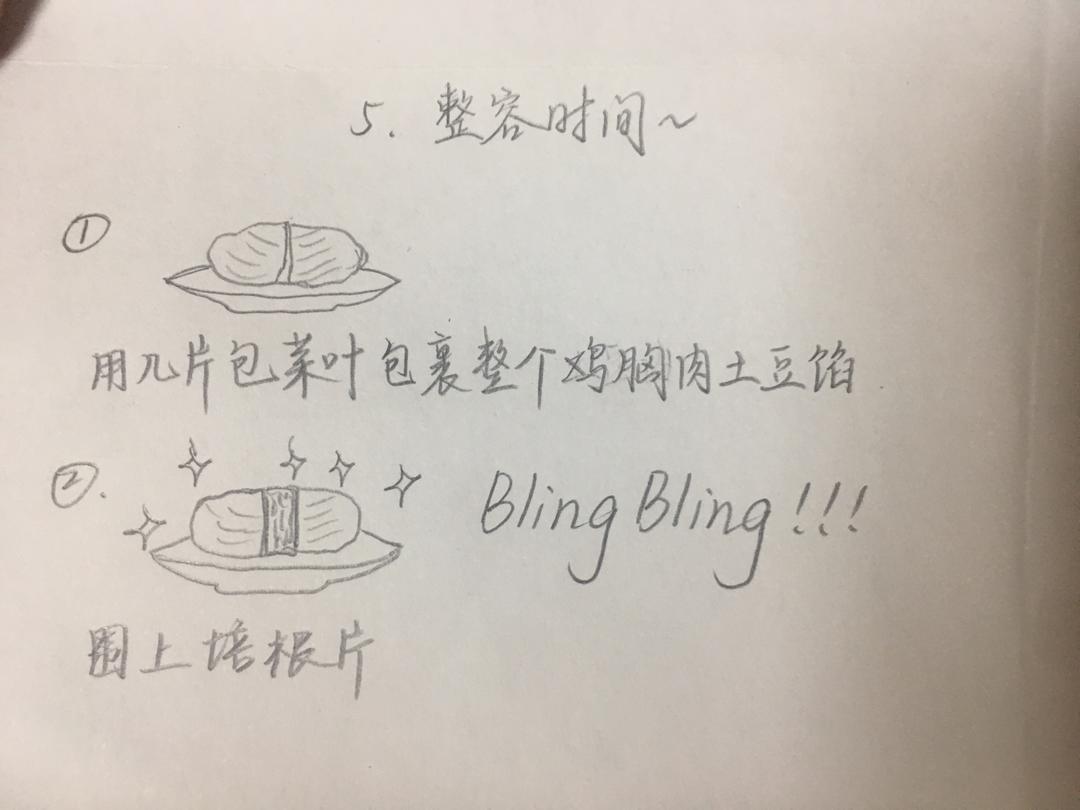 5. 整容时间~
①
用几片包菜叶包裹整个鸡胸肉土豆馅
②.
Bling Bling!!!
围上培根片